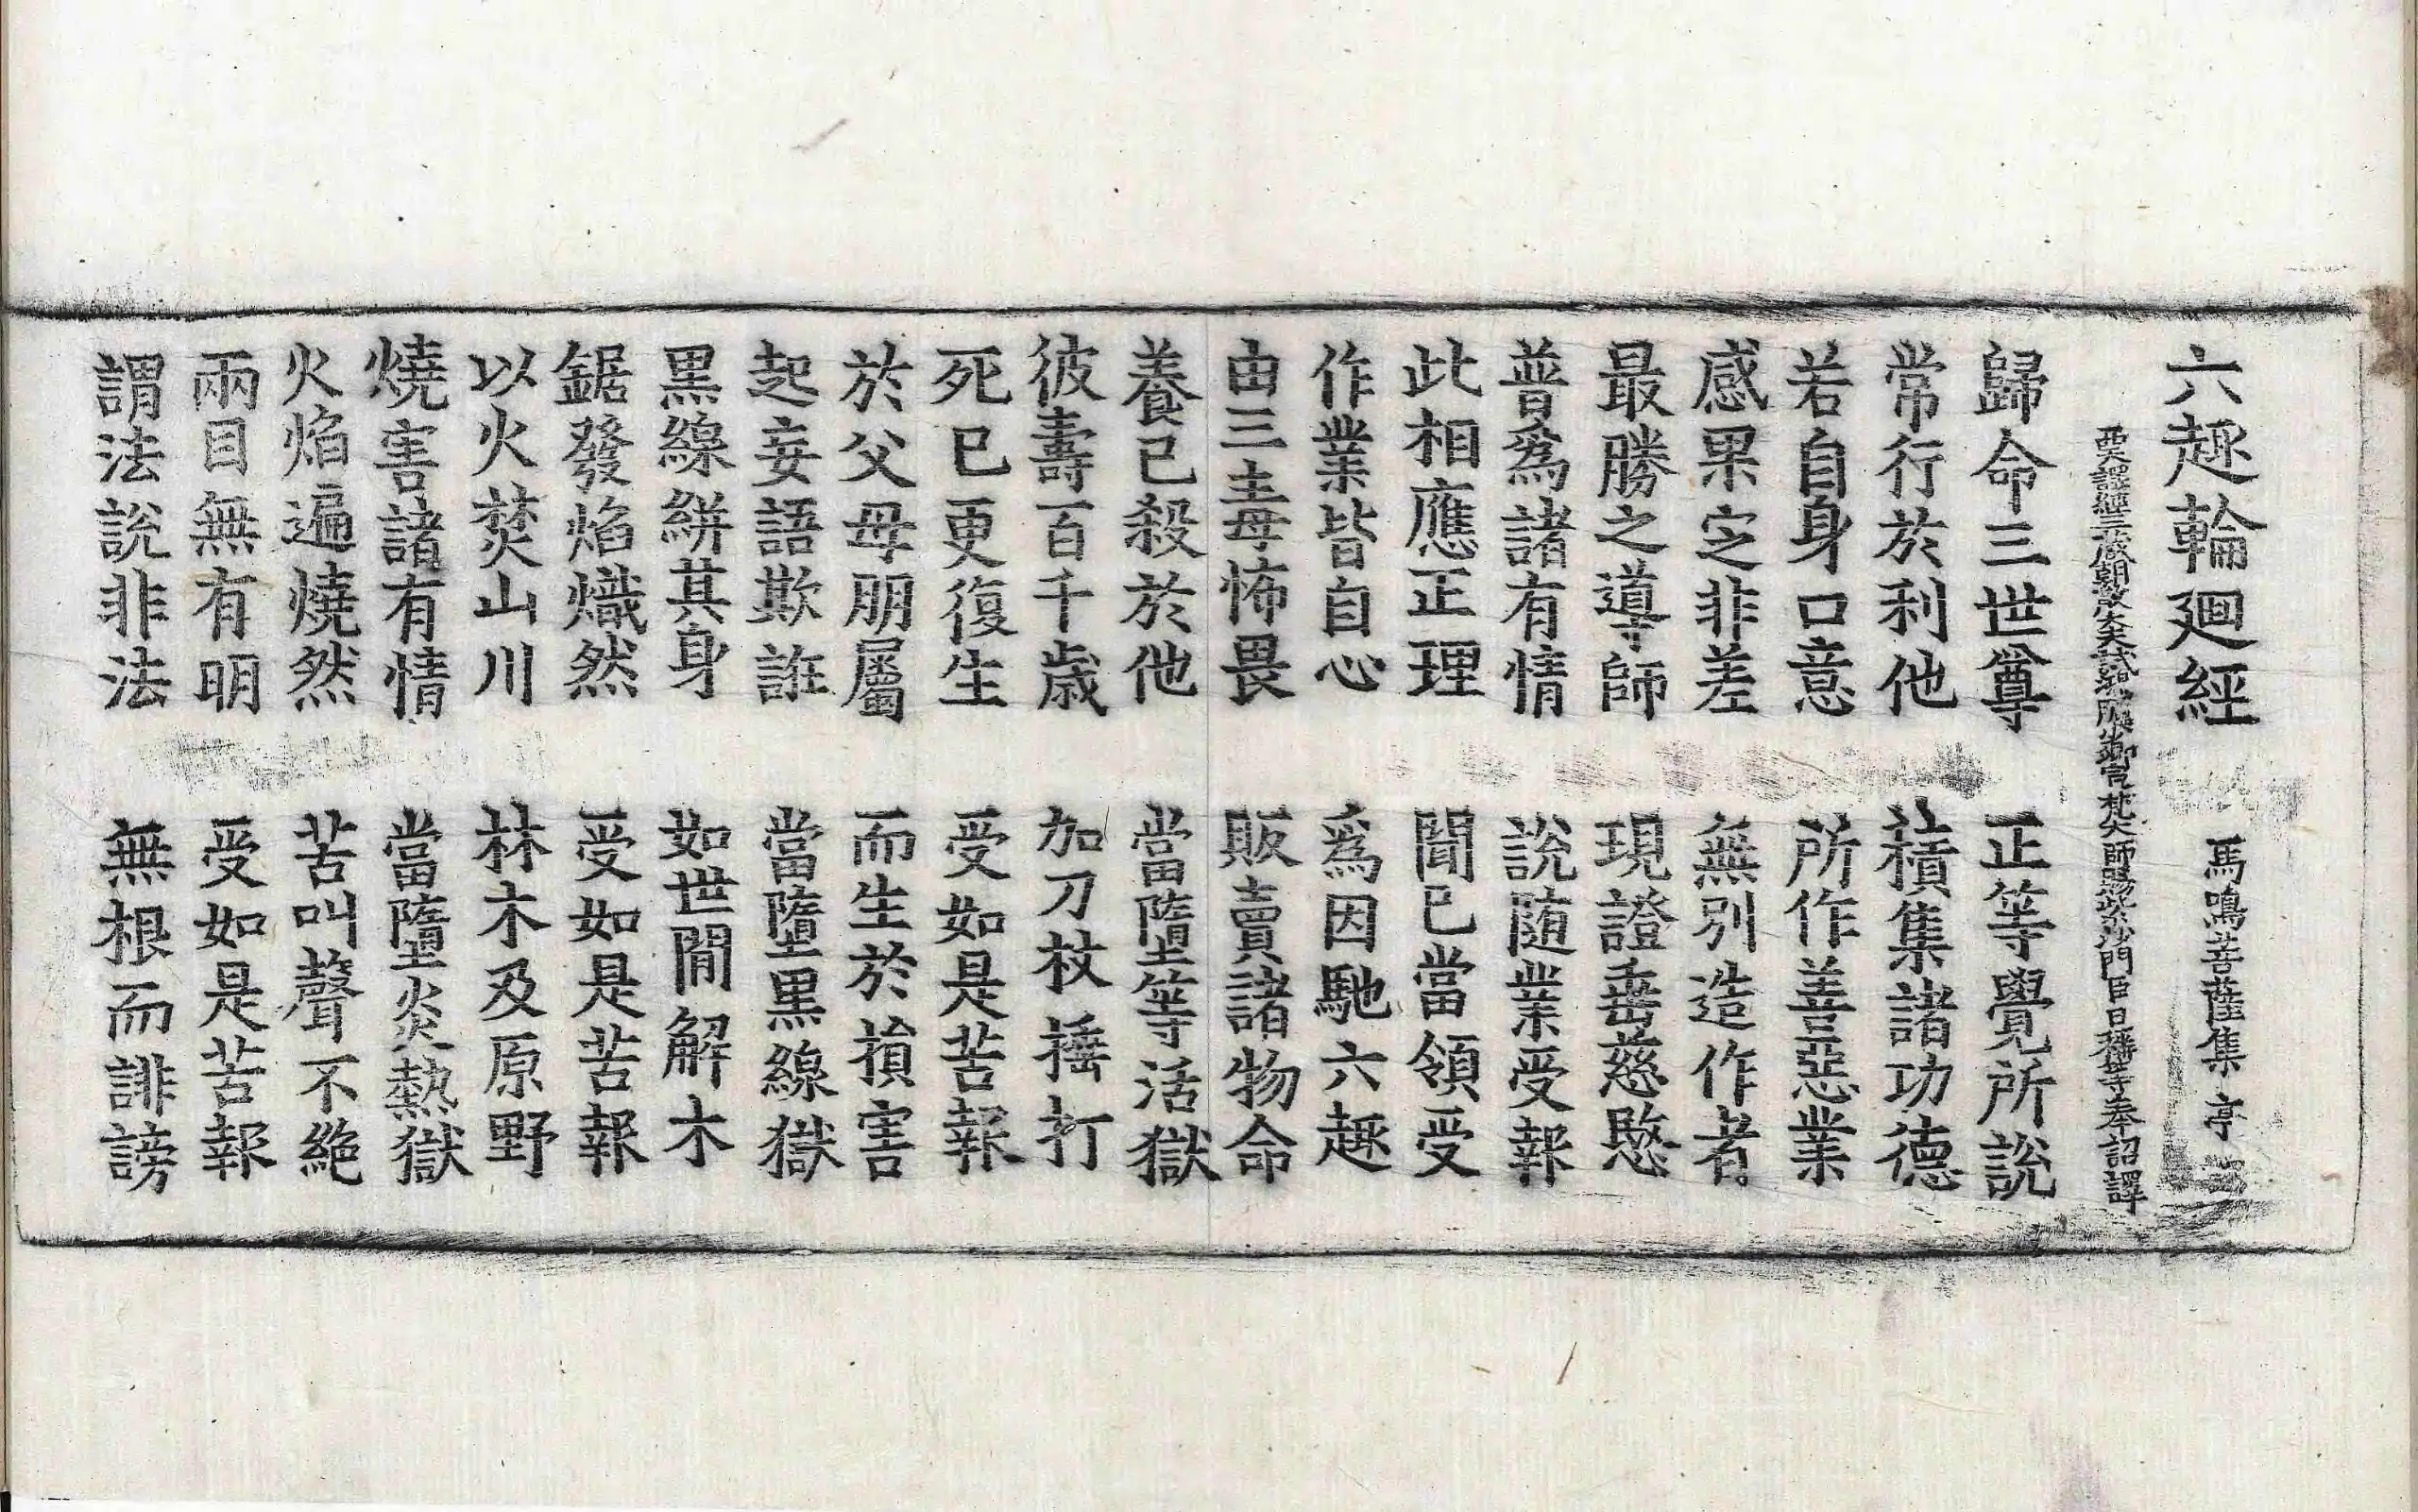 六趣輪廻經 馬鳴菩薩集 亭
西天譯經三藏朝散大夫試鴻臚少卿宣梵大師賜紫沙門臣日稱等奉詔譯
歸命三世尊 正等覺所說
常行於利他 積集諸功德
若自身口意 所作善惡業
感果定非差 無別造作者
最勝之導師 現證垂慈愍
普爲諸有情 說随業受報
此相應正理 聞已當領受
作業皆自心 爲因馳六趣
由三毒怖畏 販賣諸物命
養已殺於他 當墮等活獄
彼壽百千歳 加刀杖捶打
死已更復生 受如是苦報
於父母朋屬 而生於損害
起妄語欺誑 當墮黒線獄
黒線絣其身 如世閒解木
鋸發焰熾然 受如是苦報
以火焚山川 林木及原野
燒害諸有情 當墮炎熱獄
火焰遍燒然 苦叫聲不絕
兩目無有明 受如是苦報
謂法說非法 無根而誹謗